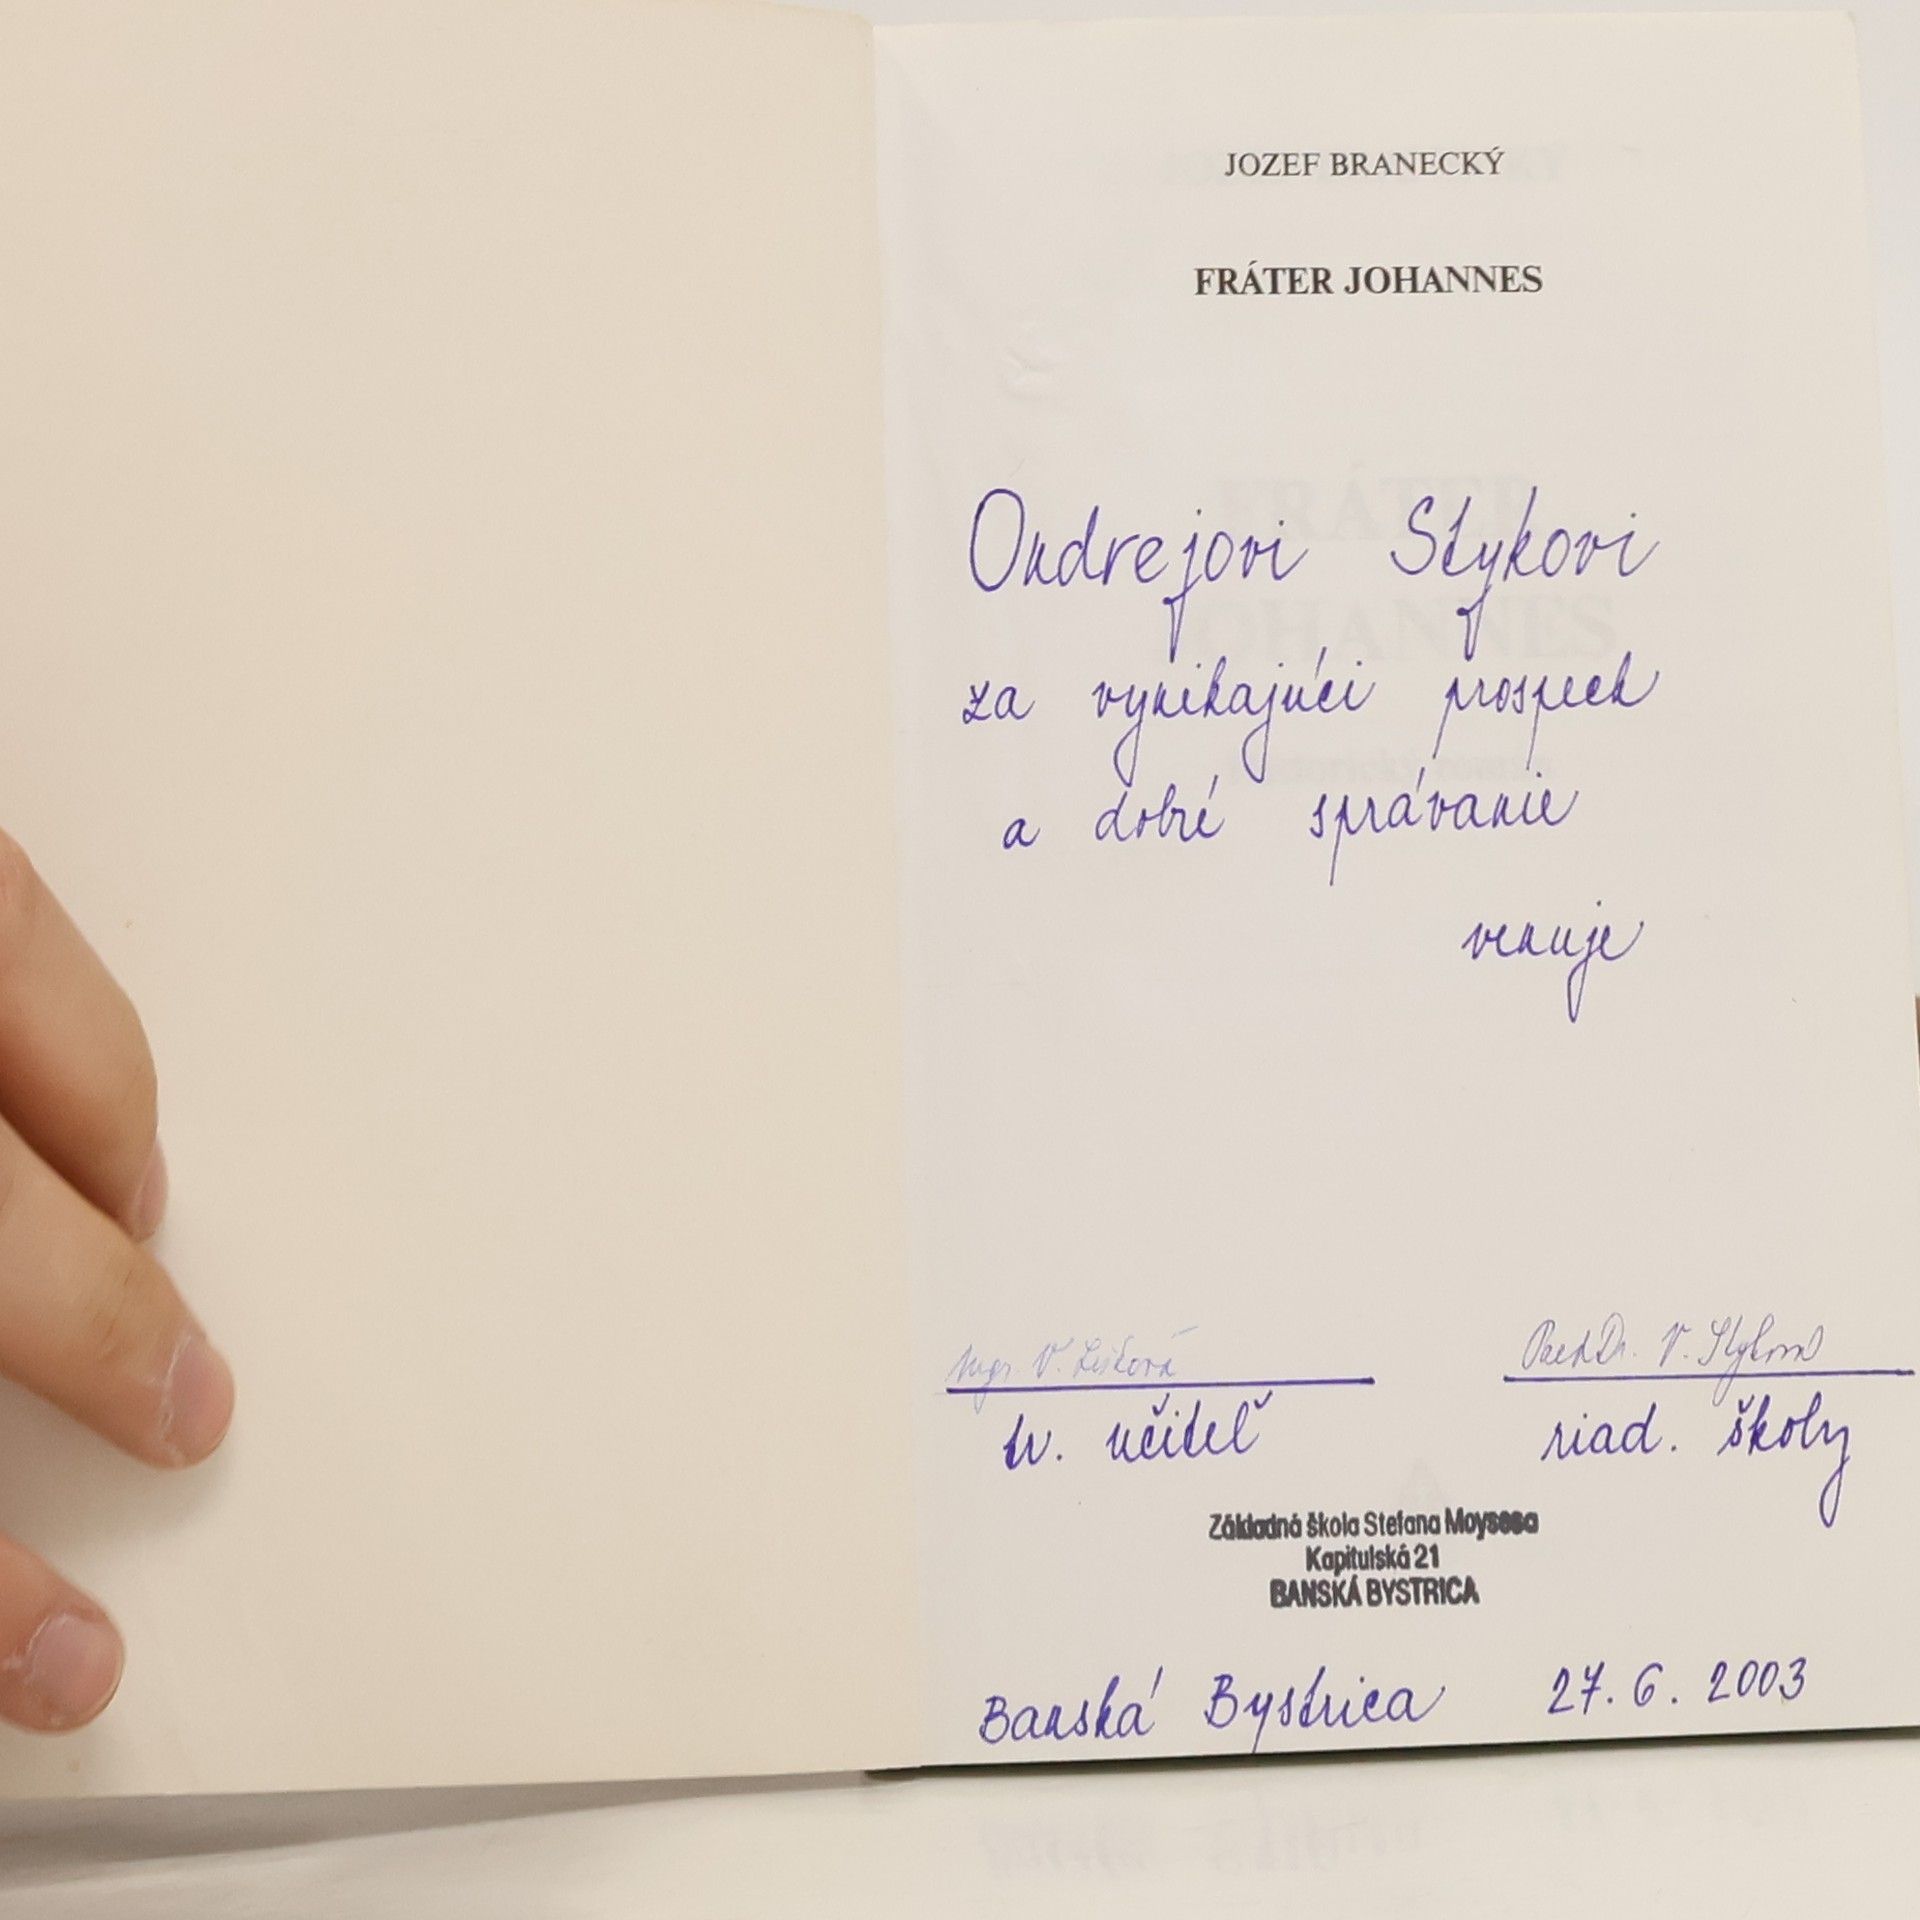 JOZEF BRANECKÝ
FRÁTER JOHANNES
Ondrejovi Stykovi
za vynikajúci prospech
a dobré správanie
venuje
Mgr. V. PaedDr. V. Styková
tr. učiteľ riad. školy
Základná škola Stefana Moysesa
Kapitulská 21
BANSKÁ BYSTRICA
Banská Bystrica 27. 6. 2003